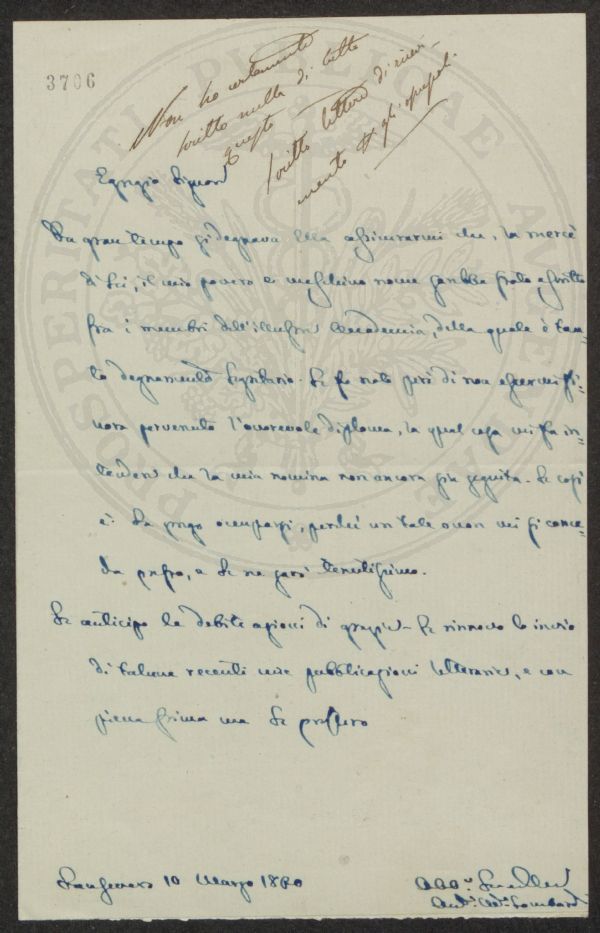 3706
Non ho certamente
scritto nulla di tutto
questo scritto lettera di ricevi-
mento gli opuscoli.
Egregio Signore
Da gran tempo si degnava Ella assicurarmi che, la mercè
di Lei, il mio povero e meschino nome sarebbe stato ascritto
fra i membri dell'illustre Accademia, della quale è tan-
to degnamente Segretario. Le fo noto però di non essermi fi-
nora pervenuto l'onorevole diploma, la qual cosa mi fa in-
tendere che la mia nomina non ancora sia seguita. Se così
è La prego occuparsi, perchè un tale onor mi si conce-
da presto, e Le ne sarò tenutissimo.
Le anticipo le debite azioni di grazie. Le rinnovo lo invio
di talune recenti mie pubblicazioni letterarie, e con
piena stima me Le profferò
10 Marzo 1860
PROSPERITATI PUBLICAE AUGENDAE